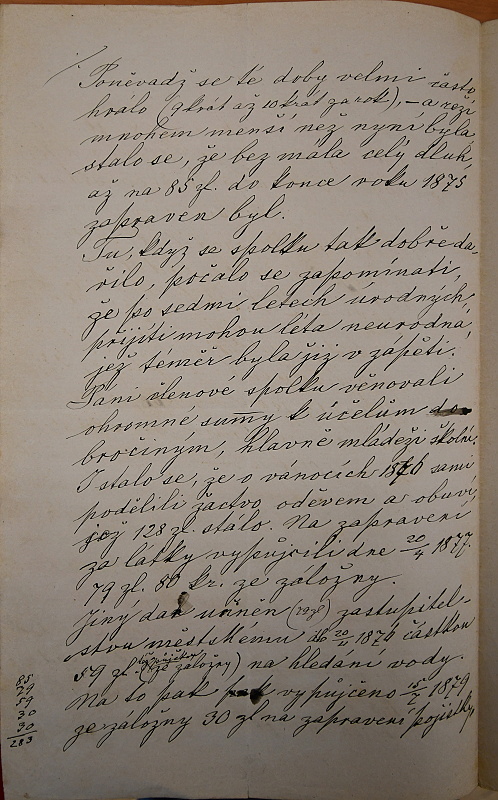 Poněvadž se té doby velmi často
hrálo (9krát až 10krát za rok), – a režie
mnohem menší než nyní byla
stalo se, že bez mála celý dluh,
až na 85 zl. do konce roku 1875
zapraven byl.
Tu, když se spolku tak dobře da-
řilo, počalo se zapomínati,
že po sedmi letech úrodných,
přijíti mohou léta neurodná,
jež téměř byla již v zápětí.
Páni členové spolku věnovali
ohromné sumy k účelům do-
bročiným, hlavně mládeži školní.
I stalo se, že o vánocích 1876 sami
podělili žactvo oděvem a obuví,
jež 128 zl. stálo. Na zapravení
za látky vypůjčili dne 20/4 1877.
79 zl. 80 kr. ze záložny.
Jiný dar učiněn zastupitel-
stvu městskému 20/11 1876 částkou
59 zl. (ze záložny) na hledání vody.
Na to pak vypůjčeno 15/2 1879
ze záložny 30 zl na zapravení pojistky,
85
79
59
30
30
283